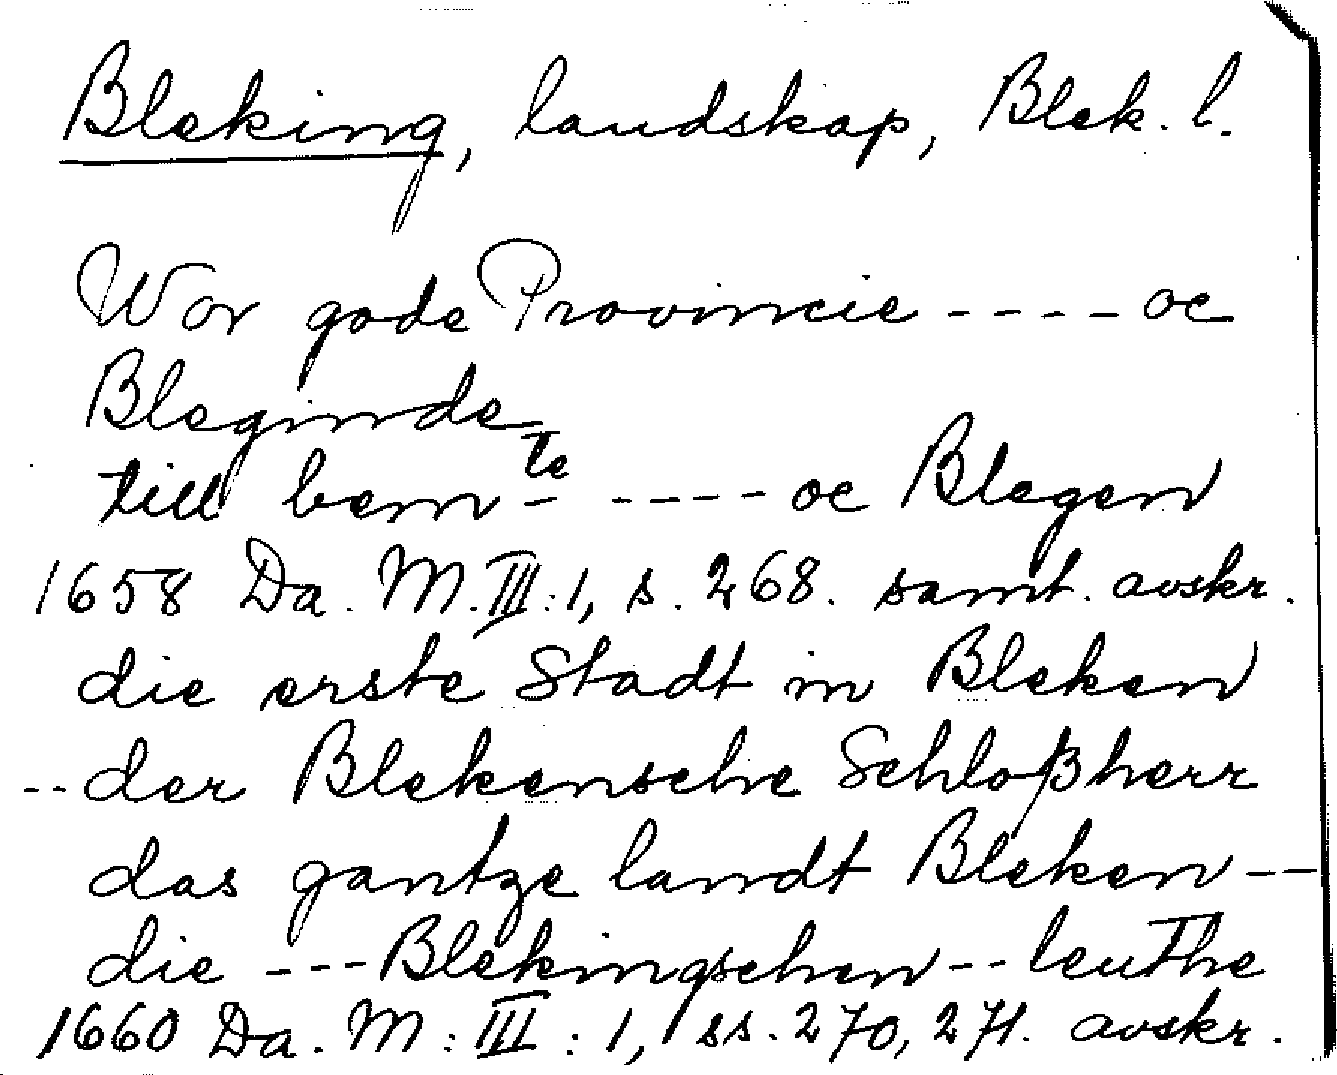 Bleking, landskap, Blek. l.
Wor gode Provincie ---- oc
Bleginde
till bem-te ---- oc Blegen
1658 Da. M. III:1, s. 268. samt. avskr.
die erste Stadt in Bleken
-- der Blekensche Schloßherr
das gantze landt Bleken --
die --- Blekingschen -- leuthe
1660 Da. M: III: 1, ss. 270, 271. avskr.